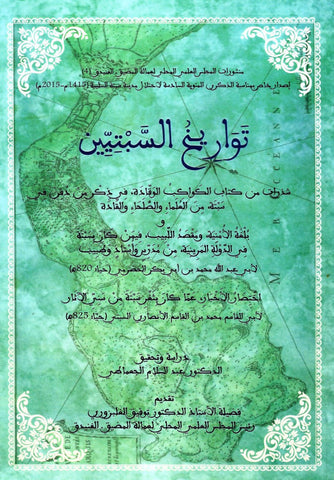 منشورات المجلس العلمي المحلي لعمالة المضيق الفنيدق (4)
إصدار خاص بمناسبة الذكرى المئوية السادسة لاحتلال مدينة سبتة السليبة (1415م-2015م)
تَوَارِيخُ السَّبْتِيِّين
شذرات من كتاب الكواكب الوقادة، في ذكر من دفن في
سبتة من العلماء والصلحاء والقادة
و
بلغة الأمنية، ومقصد اللبيب، فيمن كان بسبتة
في الدولة المرينية من مدرس وأستاذ وطبيب
لأبي عبد الله محمد بن أبي بكر الحضرمي (حيا 820هـ)
اختصار الأخبار، عما كان بثغر سبتة من سني الآثار
لأبي القاسم محمد بن القاسم الأنصاري السبتي (حيا 825هـ)
دراسة وتحقيق
الدكتور عبد السلام الجعماطي
تقديم
فضيلة الأستاذ الدكتور توفيق الغلبزوري
رئيس المجلس العلمي المحلي لعمالة المضيق الفنيدق
MER OCEANNE